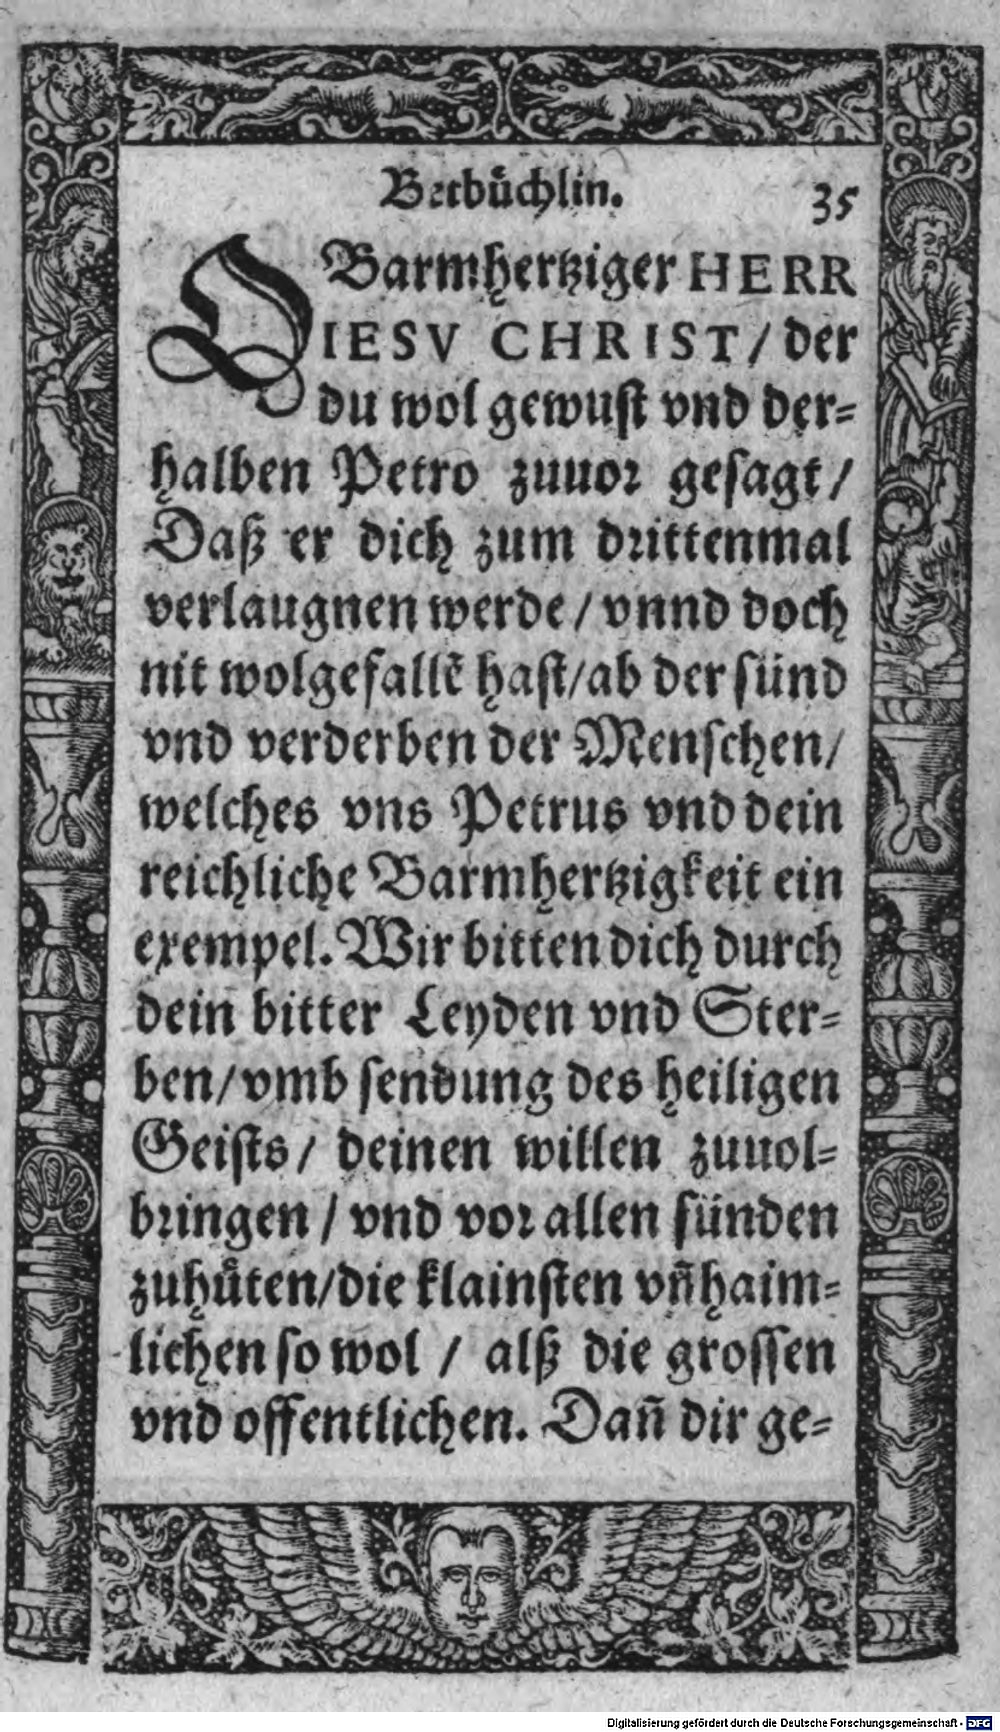 Betbuͤchlin. 35
O Barmhertziger HERR
IESV CHRIST/ der
du wol gewust vnd der⸗
halben Petro zuuor gesagt/
Daß er dich zum drittenmal
verlaugnen werde/ vnnd doch
nit wolgefallē hast/ab der sünd
vnd verderben der Menschen/
welches vns Petrus vnd dein
reichliche Barmhertzigkeit ein
exempel. Wir bitten dich durch
dein bitter Leyden vnd Ster⸗
ben/vmb sendung des heiligen
Geists/ deinen willen zuuol⸗
bringen/ vnd vor allen sünden
zuhuͤten/die klainsten vn̄ haim⸗
lichen so wol/ alß die grossen
vnd offentlichen. Dan̄ dir ge⸗
Digitalisierung gefördert durch die Deutsche Forschungsgemeinschaft - DFG